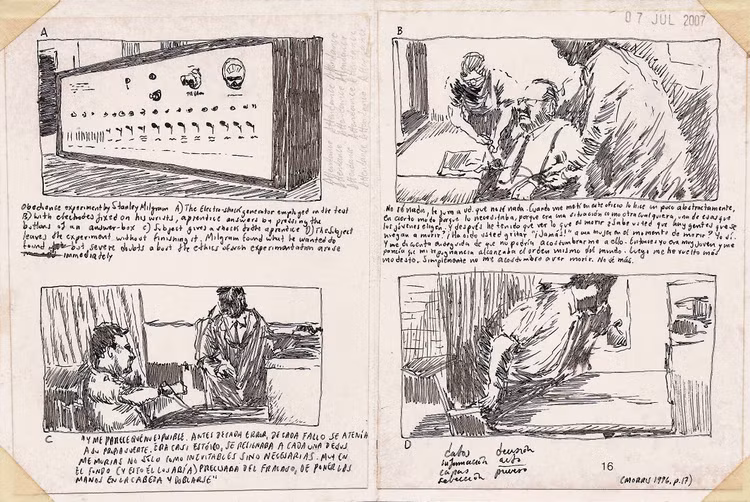 07 JUL 2007
A
B
Obedience experiment by Stanley Milgram A) The Electroshock generator employed in the test
B) with electrodes fixed on his wrists, apprentice answers by pressing the
buttons of an answer-box C) Subject gives a shock to the apprentice D) The Subject
leaves the experiment without finishing it, Milgram found what he wanted to
found but severe doubts about the ethics of such experimentation arose
immediately
No sé nada, te juro a vd. que no sé nada. Cuando me metí en este oficio lo hice un poco abstractamente,
En cierto modo porque lo necesitaba, porque era una situación como otra cualquiera, una de esas que
los jóvenes eligen. Y después he tenido que ver lo que es morir ¿Sabe usted que hay gentes que se
niegan a morir? ¿Ha oído usted gritar "¡Jamás!" a una mujer en el momento de morir? Yo sí.
Y me di cuenta enseguida de que no podría acostumbrarme a ello. Entonces yo era muy joven y me
parecía que mi repugnancia alcanzaba el orden mismo del mundo. Luego me he vuelto más
modesto. Simplemente no me acostumbro a ver morir. No sé más.
C
"Y ME PARECE QUE NO ES POSIBLE. ANTES DE CADA ERROR, DE CADA FALLO SE ATENÍA
A SU PROPIA SUERTE. ERA CASI ESTOICO, SE RESIGNABA A CADA UNA DE SUS
MEMORIAS NO SÓLO COMO INEVITABLES SINO NECESARIAS. MUY EN
EL FONDO (Y ESTO ÉL LO SABÍA) DEL FRACASO, DE PONER LAS
MANOS EN LA CABEZA Y DOBLARSE"
D
datos decisión
información acto
capas proceso
selección
16
(MORRIS 1996, p.17)